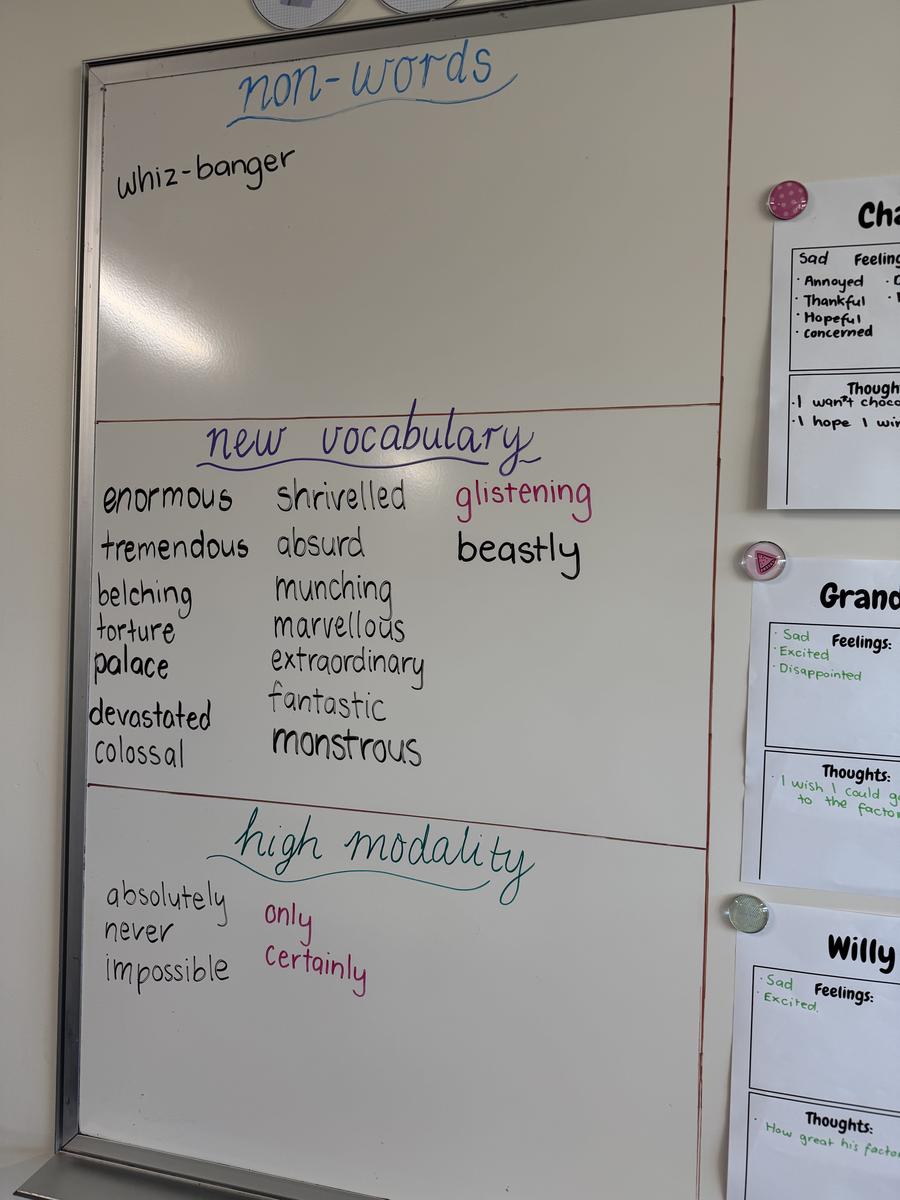 non-words
whiz-banger
new vocabulary
enormous
tremendous
belching
torture
palace
devastated
colossal
shrivelled
absurd
munching
marvellous
extraordinary
fantastic
monstrous
glistening
beastly
high modality
absolutely
never
impossible
only
certainly
Sad
· Annoyed
· Thankful
· Hopeful
· concerned
·I
·I hope I
Sad Feelings:
· Excited
· Disappointed
Thoughts:
· I wish I could
to the
Willy
· Sad Feelings:
· Excited.
Thoughts:
· How great his